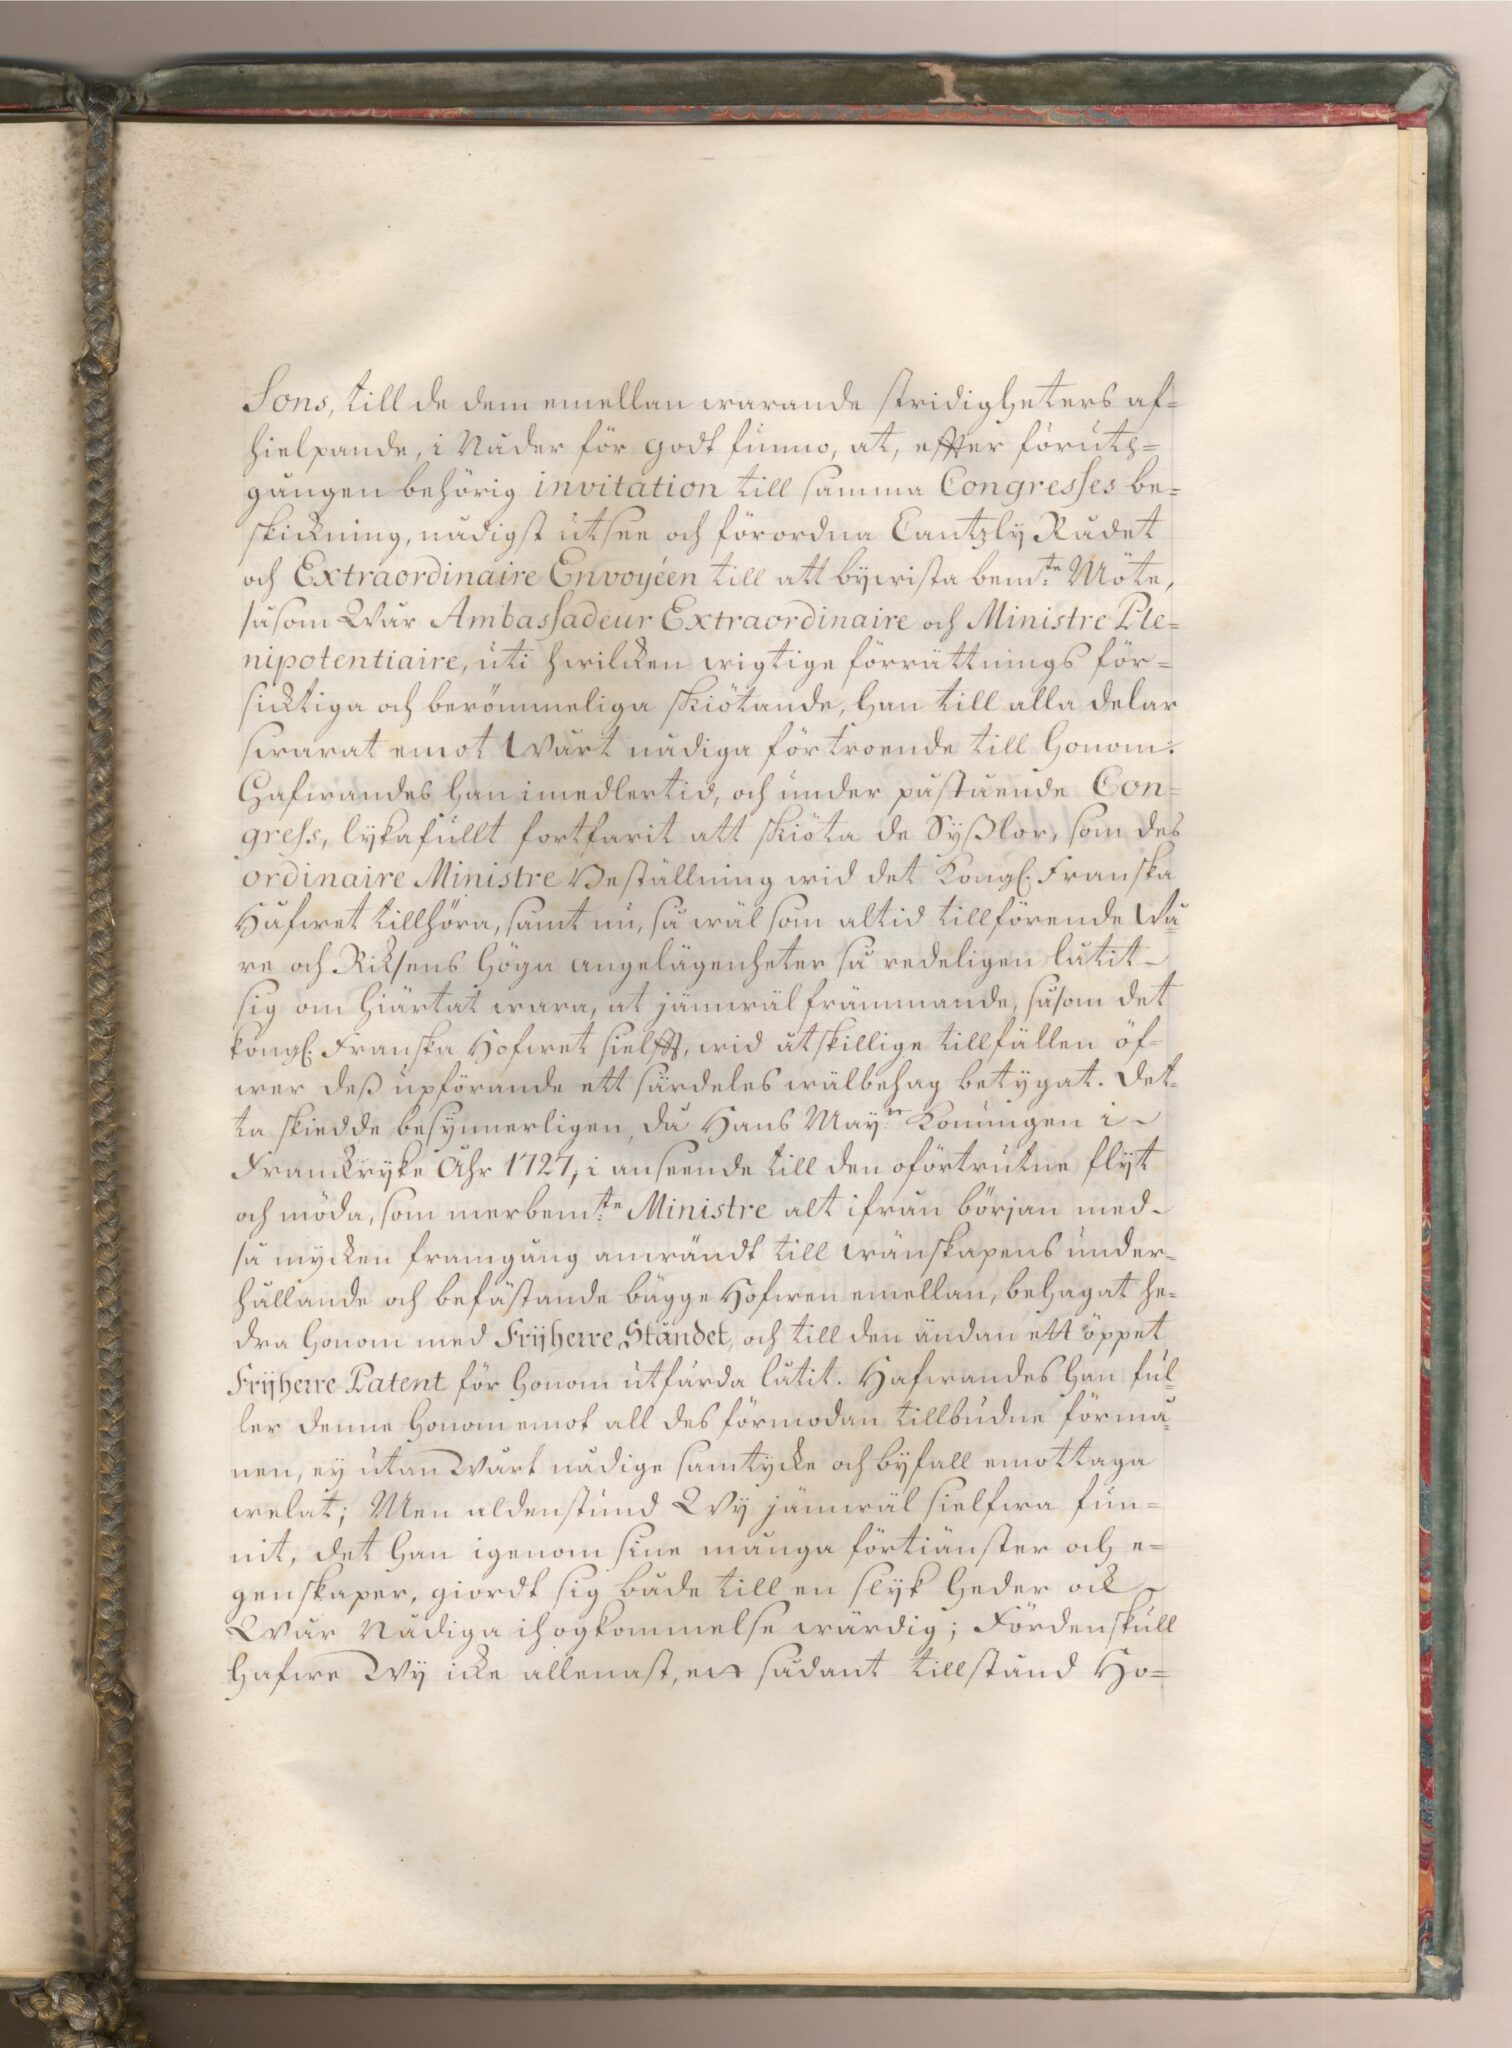 Sons, till de dem emellan warande stridigheters af=
hielpande, i Nåder för godt funno, at, effter förutg=
gången behörig invitation till samma Congresses be=
skickning, nådigst utsee och förordna Cantzly Rådet
och Extraordinaire Envoyéen till att bÿwista bem:te Möte,
såsom Wår Ambassadeur Extraordinaire och Ministre Ple=
nipotentiaire, uti hwilcken wigtige förrättnings för=
sicktiga och berömmeliga skiötande, han till alla delar
swarat emot Wårt nådiga förtroende till honom:
Hafwandes han imedlertid, och under påstående Con=
gress, lÿkafullt fortfarit att skiöta de Sÿßlor, som des
ordinaire Ministre Beställning wid det Kongl. Franska
Håfwet tillhöra, samt nu, så wäl som altid tillförende Wå=
re och Riksens höga angelägenheter så redeligen låtit
sig om hiärtat wara, at jämwäl främmande, såsom det
kongl. Franska Hofwet sielfft, wid åtskillige tillfällen öf=
wer deß upförande ett särdeles wälbehag betÿgat. Det=
ta skiedde besÿnnerligen, då Hans Maÿ:tt Konungen i
Franckrÿke Åhr 1727, i anseende till den oförtrutne flÿt
och möda, som merbem:te Ministre alt ifrån början med
så mÿcken framgång anwändt till wänskapens under=
hållande och befästande bägge Hofwen emellan, behagat he=
dra honom med Frÿherre Ståndet, och till den ändan ett öppet
Frÿherre Patent för honom utfärda låtit. Hafwandes han ful=
ler denne honom emot all des förmodan tillbudne förmå=
nen, eÿ utan Wårt nådige samtÿcke och bÿfall emottaga
welat; Men aldenstund Wÿ jämwäl sielfwa fun=
nit, det han igenom sine många förtiänster och e=
genskaper, giordt sig både till en slÿk heder och
Wår Nådiga ihogkommelse wärdig; Fördenskull
hafwe Wÿ icke allenast, ett sådant tillstånd Ho=